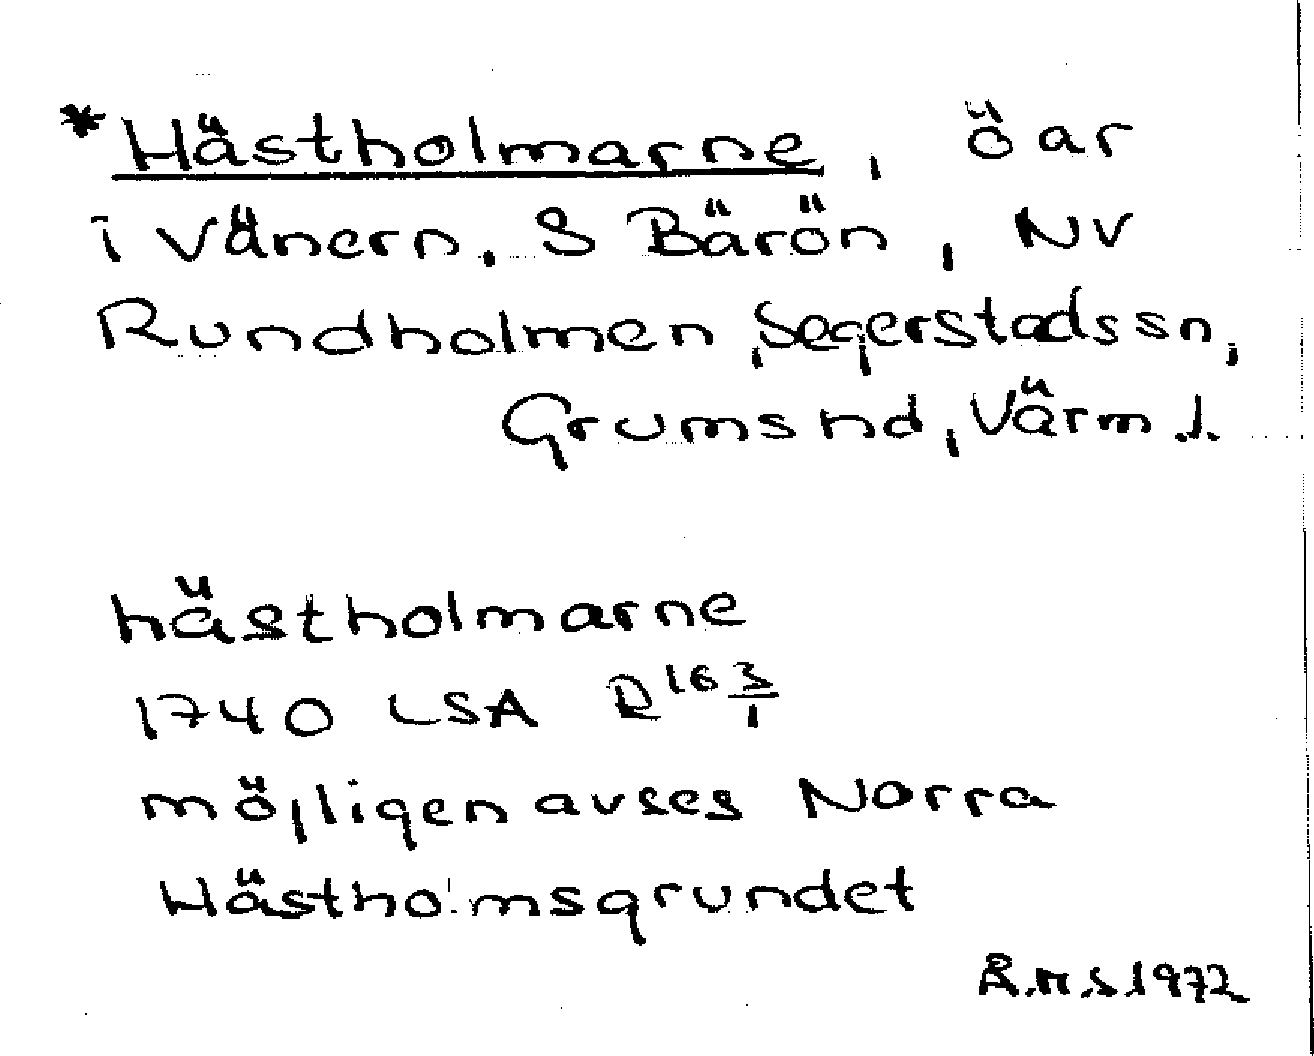 *Hästholmarne, öar
i Vänern, S Bärön, NV
Rundholmen, Segerstads sn,
Grums hd, Värml.
hästholmarne
1740 LSA R16 3/1
möjligen avses Norra
Hästholmsgrundet
R.M.S. 1972